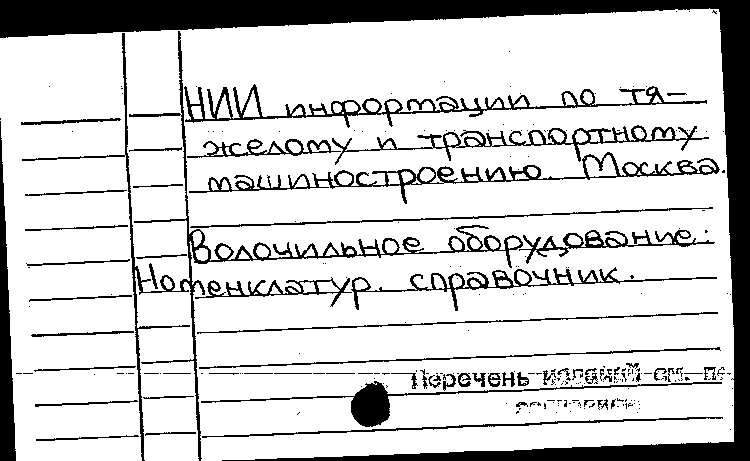 НИИ информации по тя-
желому и транспортному
машиностроению. Москва.
Волочильное оборудование:
Номенклатур. справочник.
Перечень изданий см. по